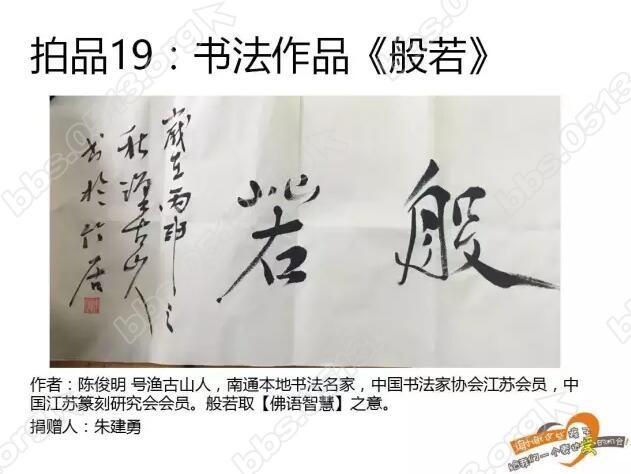 拍品19：书法作品《般若》
般若
岁在丙申之
秋渔古山人
书於竹居
作者：陈俊明 号渔古山人，南通本地书法名家，中国书法家协会江苏会员，中
国江苏篆刻研究会会员。般若取【佛语智慧】之意。
捐赠人：朱建勇
bbs.0513.org